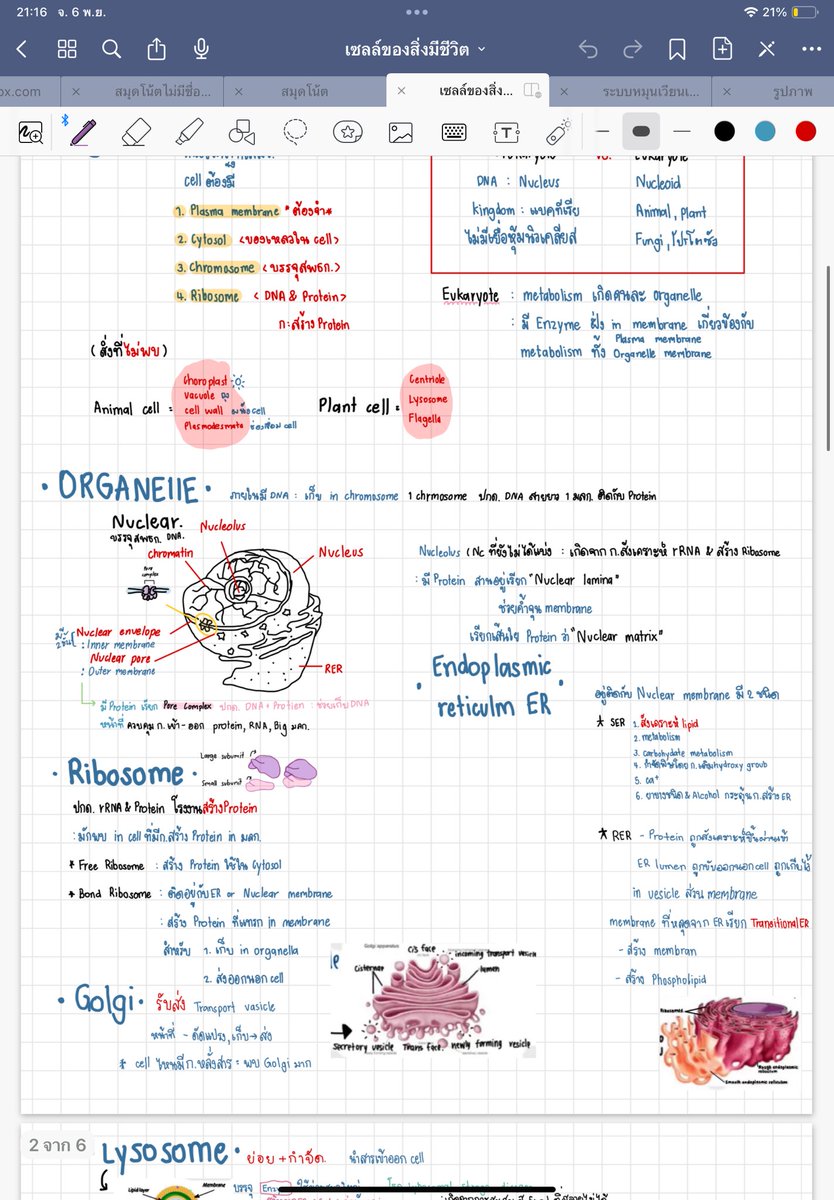 21:16 จ. 6 พ.ย.
21%
เซลล์ของสิ่งมีชีวิต
ox.com
สมุดโน้ตไม่มีชื่อ...
สมุดโน้ต
เซลล์ของสิ่ง...
ระบบหมุนเวียนเ...
รูปภาพ
cell ต้องมี
1. Plasma membrane *ต้องจำ*
2. Cytosol <ของเหลวใน cell>
3. Chromosome <บรรจุสพธก.>
4. Ribosome < DNA & Protein>
ก.สร้าง Protein
vs.
DNA : Nucleus Nucleoid
kingdom : แบคทีเรีย Animal, plant
ไม่มีเยื่อหุ้มนิวเคลียส Fungi, โปรโตซัว
Eukaryote : metabolism เกิดคนละ organelle
: มี Enzyme ฝัง in membrane เกี่ยวข้องกับ
metabolism ทั้ง Plasma membrane Organelle membrane
(สิ่งที่ไม่พบ)
Animal cell =
Choroplast
Vacuole
cell wall
Plasmodesmata
Plant cell =
Centriole
Lysosome
Flagella
• ORGANEllE •
ภายในมี DNA : เก็บ in chromosome 1 chrmosome ปกด. DNA สายยาว 1 มลก. ติดกับ Protein
Nuclear.
บรรจุสพธก. DNA.
Nucleolus
chromatin
Nucleus
Pore complex
Nuclear envelope
มี 2 ชั้น : Inner membrane
Nuclear pore
: Outer membrane
RER
มี Protein เรียก Pore Complex ปกด. DNA + Protien : ช่วยเก็บ DNA
หน้าที่ ควบคุม ก. เข้า-ออก protein, RNA, Big มลก.
Nucleolus (Nc ที่ยังไม่ได้แบ่ง : เกิดจาก ก.สังเคราะห์ rRNA & สร้าง Ribosome
: มี Protein สานอยู่เรียก "Nuclear lamina"
ช่วยค้ำจุน membrane
เรียกเส้นใย Protein ว่า "Nuclear matrix"
• Endoplasmic reticulm ER •
อยู่ติดกับ Nuclear membrane มี 2 ชนิด
* SER 1. สังเคราะห์ lipid
2. metabolism
3. carbohydate metabolism
4. กำจัดพิษโดย ก.เติม hydroxy group
5. ca⁺
6. ยาบางชนิด & Alcohol กระตุ้น ก.สร้าง ER
* RER - Protein ถูกสังเคราะห์ขึ้นผ่านเข้า
ER lumen ถูกขับออกนอก cell ถูกเก็บไว้
in vesicle ส่วน membrane
membrane ที่หลุดจาก ER เรียก Transitional ER
- สร้าง membran
- สร้าง Phospholipid
• Ribosome •
Large subunit
Small subunit
ปกด. rRNA & Protein โรงงานสร้าง Protein
: มักพบ in cell ที่มี ก.สร้าง Protein in มลก.
* Free Ribosome : สร้าง Protein ใช้ใน Cytosol
* Bond Ribosome : ติดอยู่กับ ER or Nuclear membrane
: สร้าง Protein ที่แทรก in membrane
สำหรับ 1. เก็บ in organella
2. ส่งออกนอก cell
• Golgi • รับส่ง Transport vasicle
หน้าที่ - ดัดแปรง, เก็บ → ส่ง
* cell ไหนมี ก.หลั่งสาร = พบ Golgi มาก
Golgi apparatus
Cis face
incoming transport vesicle
Cisternae
lumen
Secretory vesicle
Trans face.
newly forming vesicle
Ribosomes
Rough endoplasmic reticulum
Smooth endoplasmic reticulum
2 จาก 6
Lysosome • ย่อย + กำจัด. นำสารเข้าออก cell
Lipid layer
Membrane
บรรจุ